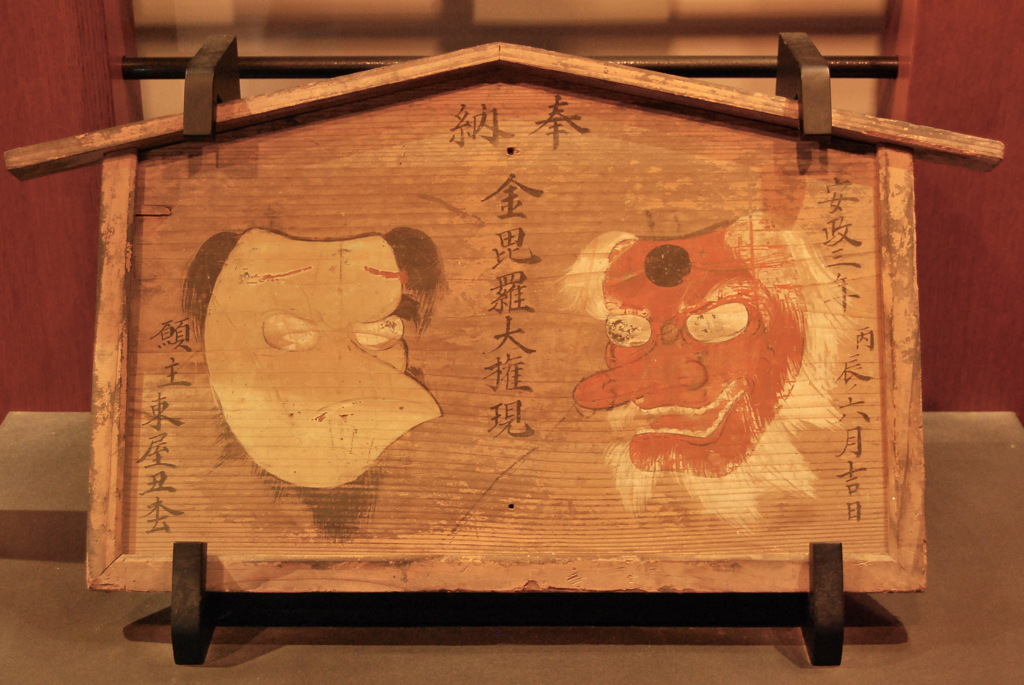 奉納
金毘羅大権現
安政三年
丙辰六月吉日
願主東屋丑